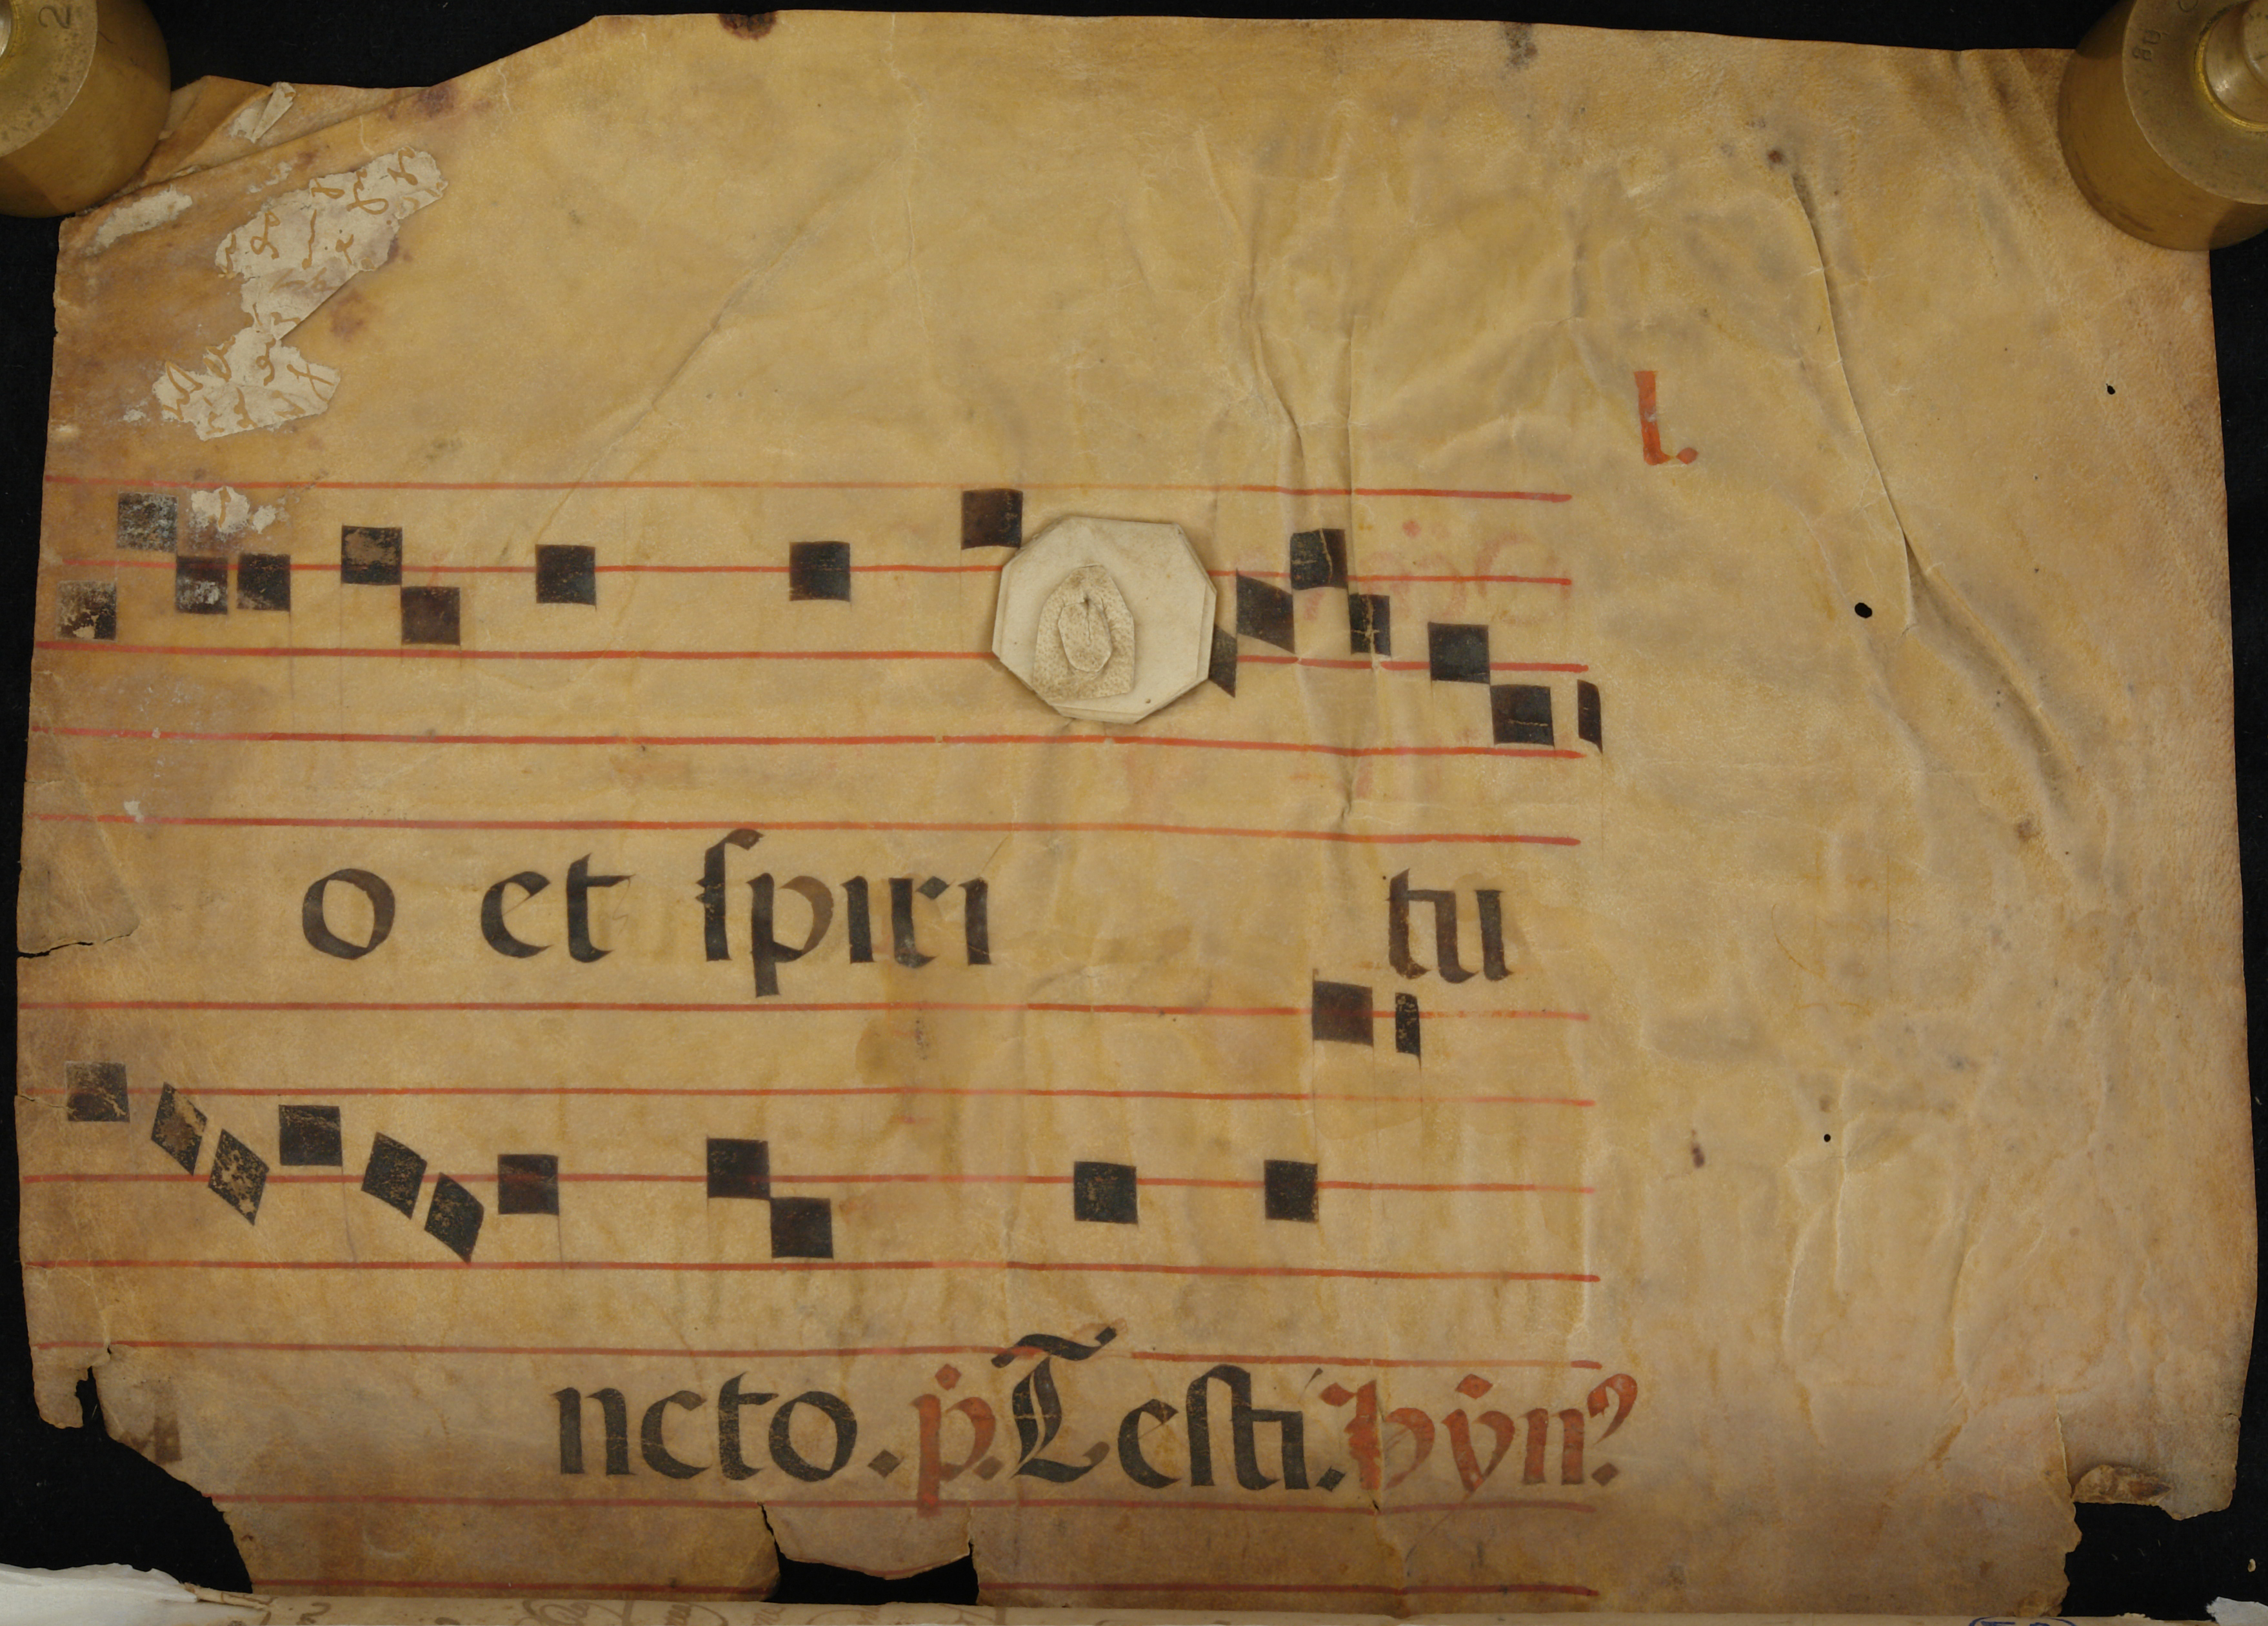 l.
o et ſpiri tu
ncto. p. Teſti. hẏn?